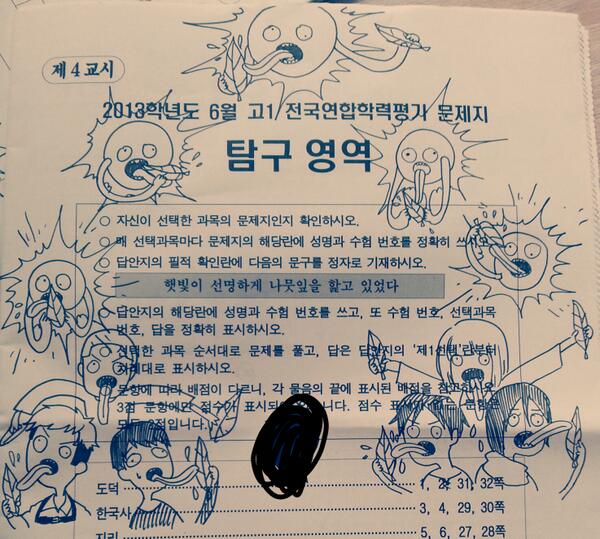 제 4 교시
2013학년도 6월 고1 전국연합학력평가 문제지
탐구 영역
○ 자신이 선택한 과목의 문제지인지 확인하시오.
○ 매 선택과목마다 문제지의 해당란에 성명과 수험 번호를 정확히 쓰시오.
○ 답안지의 필적 확인란에 다음의 문구를 정자로 기재하시오.
햇빛이 선명하게 나뭇잎을 핥고 있었다
○ 답안지의 해당란에 성명과 수험 번호를 쓰고, 또 수험 번호, 선택과목
번호, 답을 정확히 표시하시오.
선택한 과목 순서대로 문제를 풀고, 답은 답안지의 '제1선택'란부터
차례대로 표시하시오.
문항에 따라 배점이 다르니, 각 물음의 끝에 표시된 배점을 참고하시오.
3점 문항에만 점수가 표시되어 있습니다. 점수 표시가 없는 문항은
모두 2점입니다.
도덕 1, 2, 31, 32쪽
한국사 3, 4, 29, 30쪽
지리 5, 6, 27, 28쪽